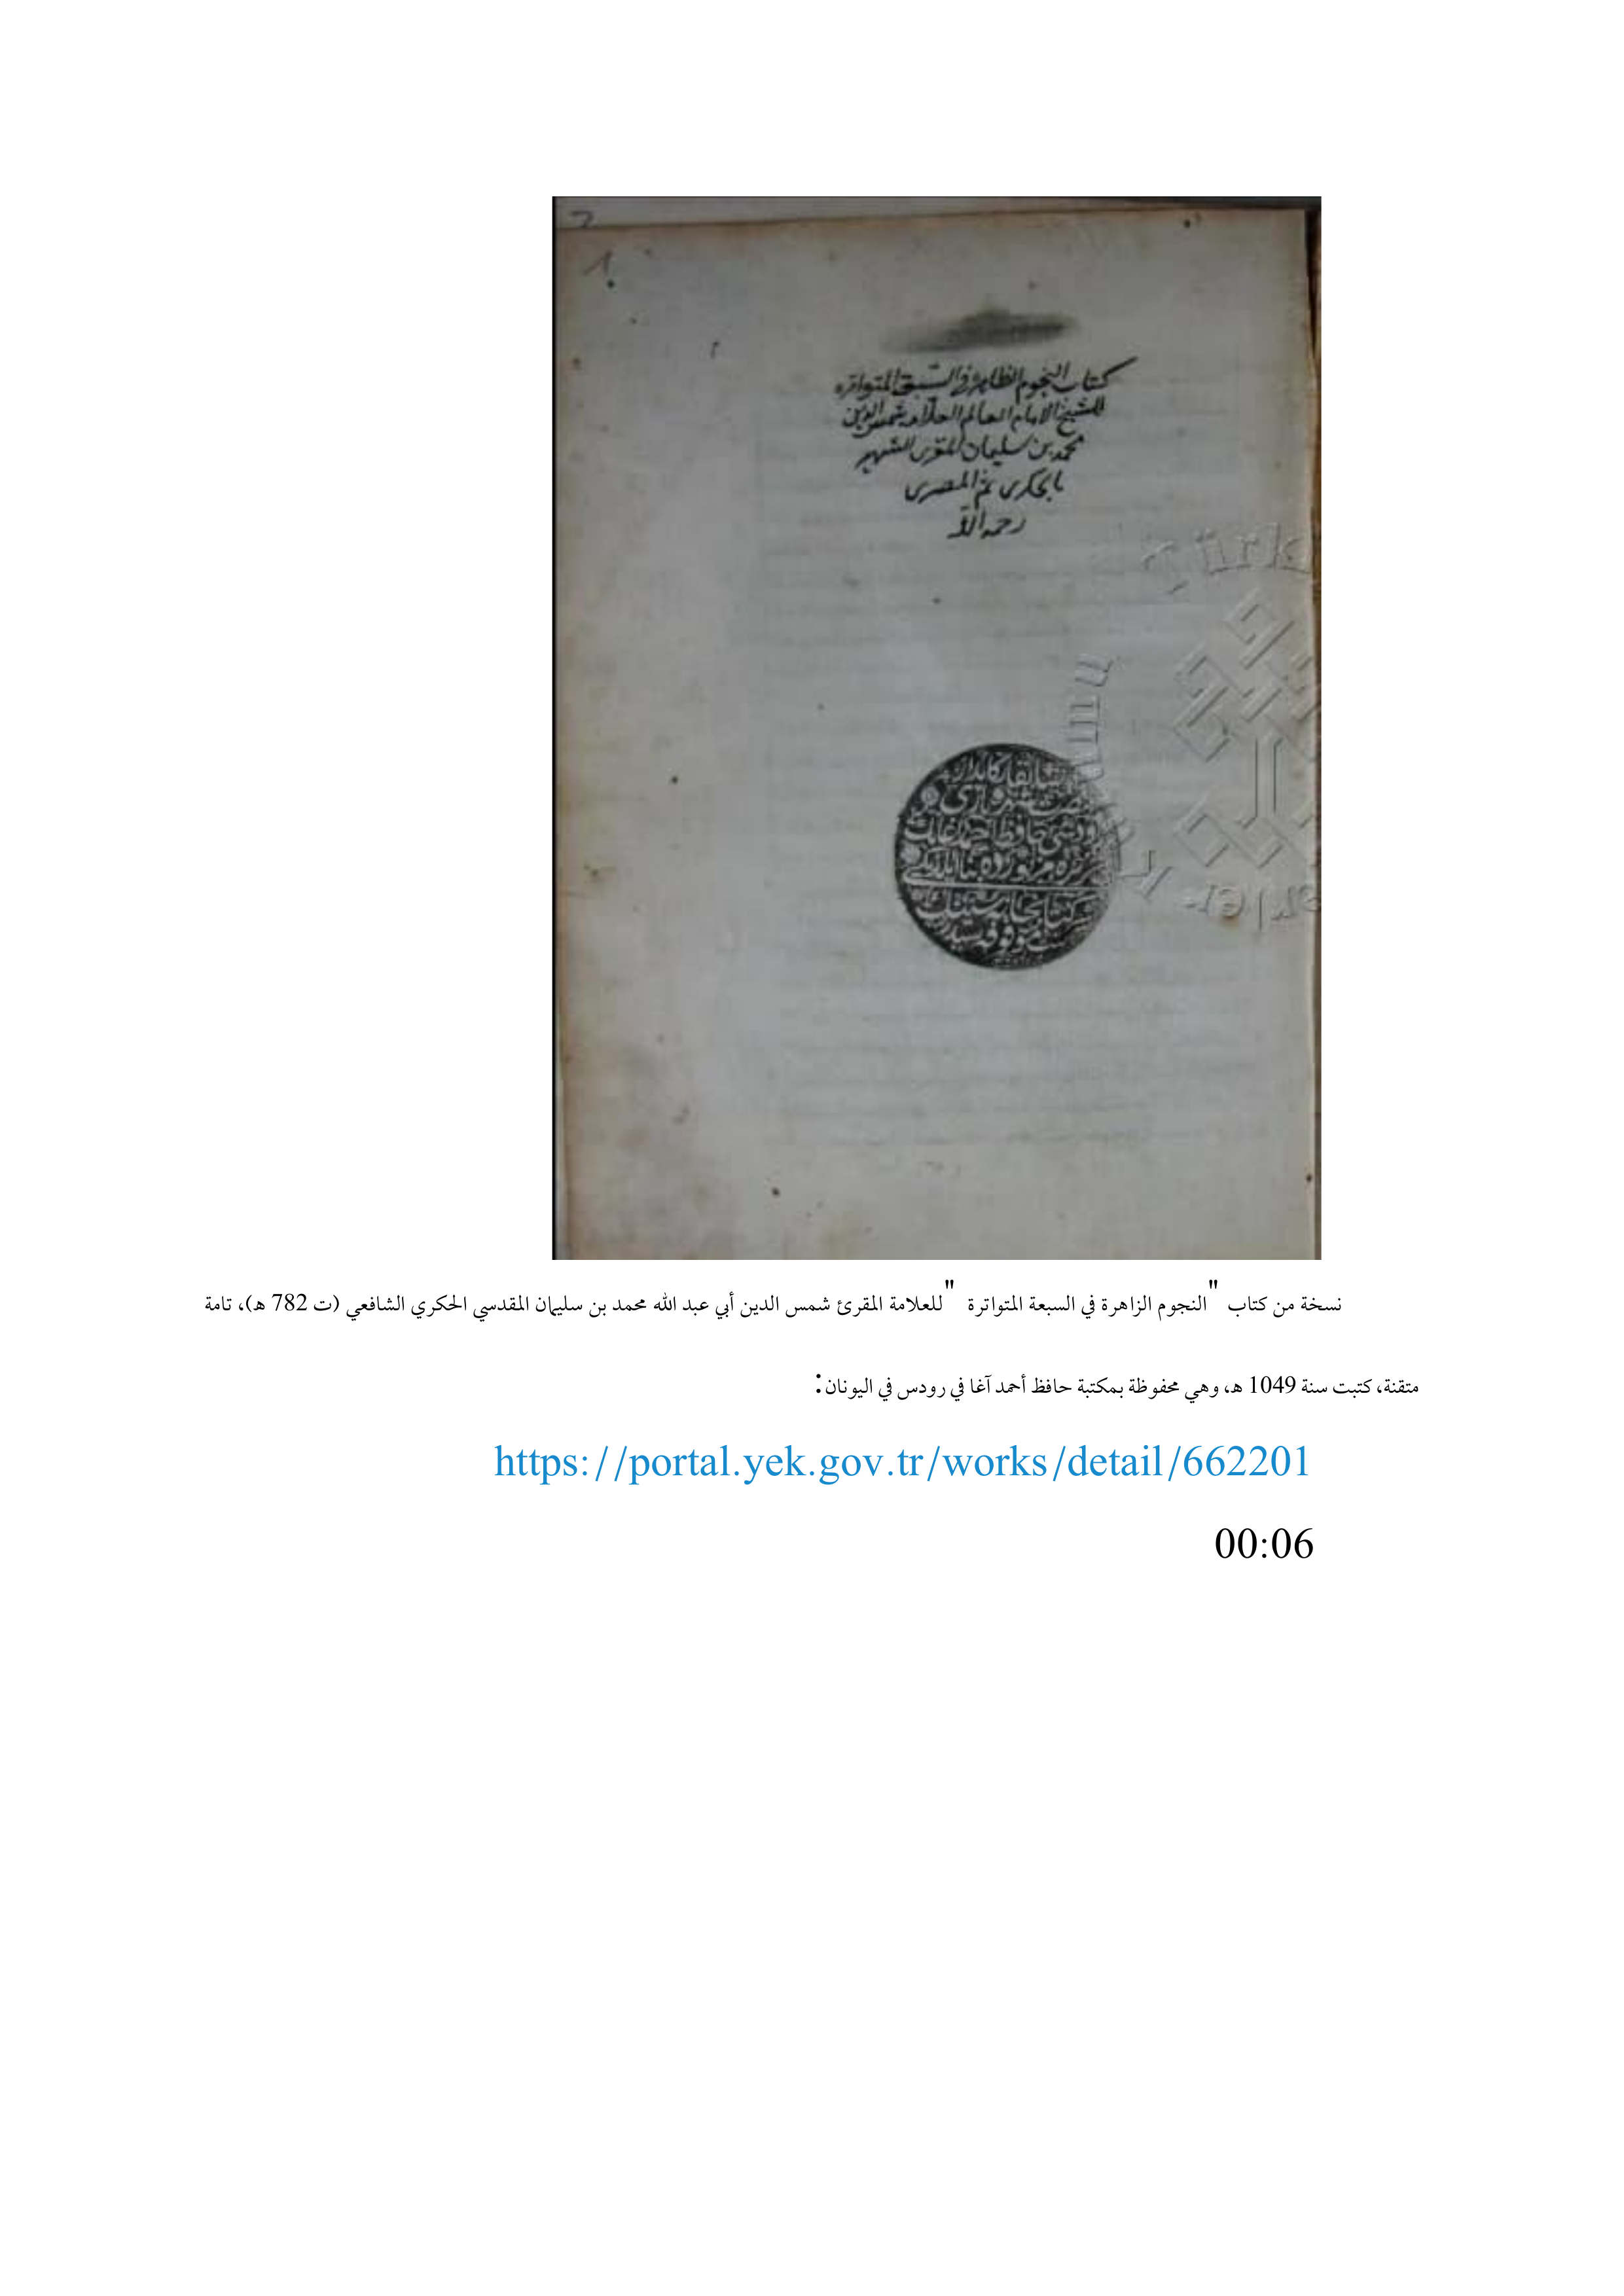 2
1
كتاب النجوم الظاهرة في السبعة المتواتره
للشيخ الامام العالم العلامه شمس الدين
محمد بن سليمان المقرى الشهير
بالحكرى ثم المصرى
رحمه الله
Türk
نسخة من كتاب "النجوم الزاهرة في السبعة المتواترة "للعلامة المقرئ شمس الدين أبي عبد الله محمد بن سليمان المقدسي الحكري الشافعي (ت 782 هـ)، تامة
متقنة، كتبت سنة 1049 هـ، وهي محفوظة بمكتبة حافظ أحمد آغا في رودس في اليونان:
https://portal.yek.gov.tr/works/detail/662201
00:06